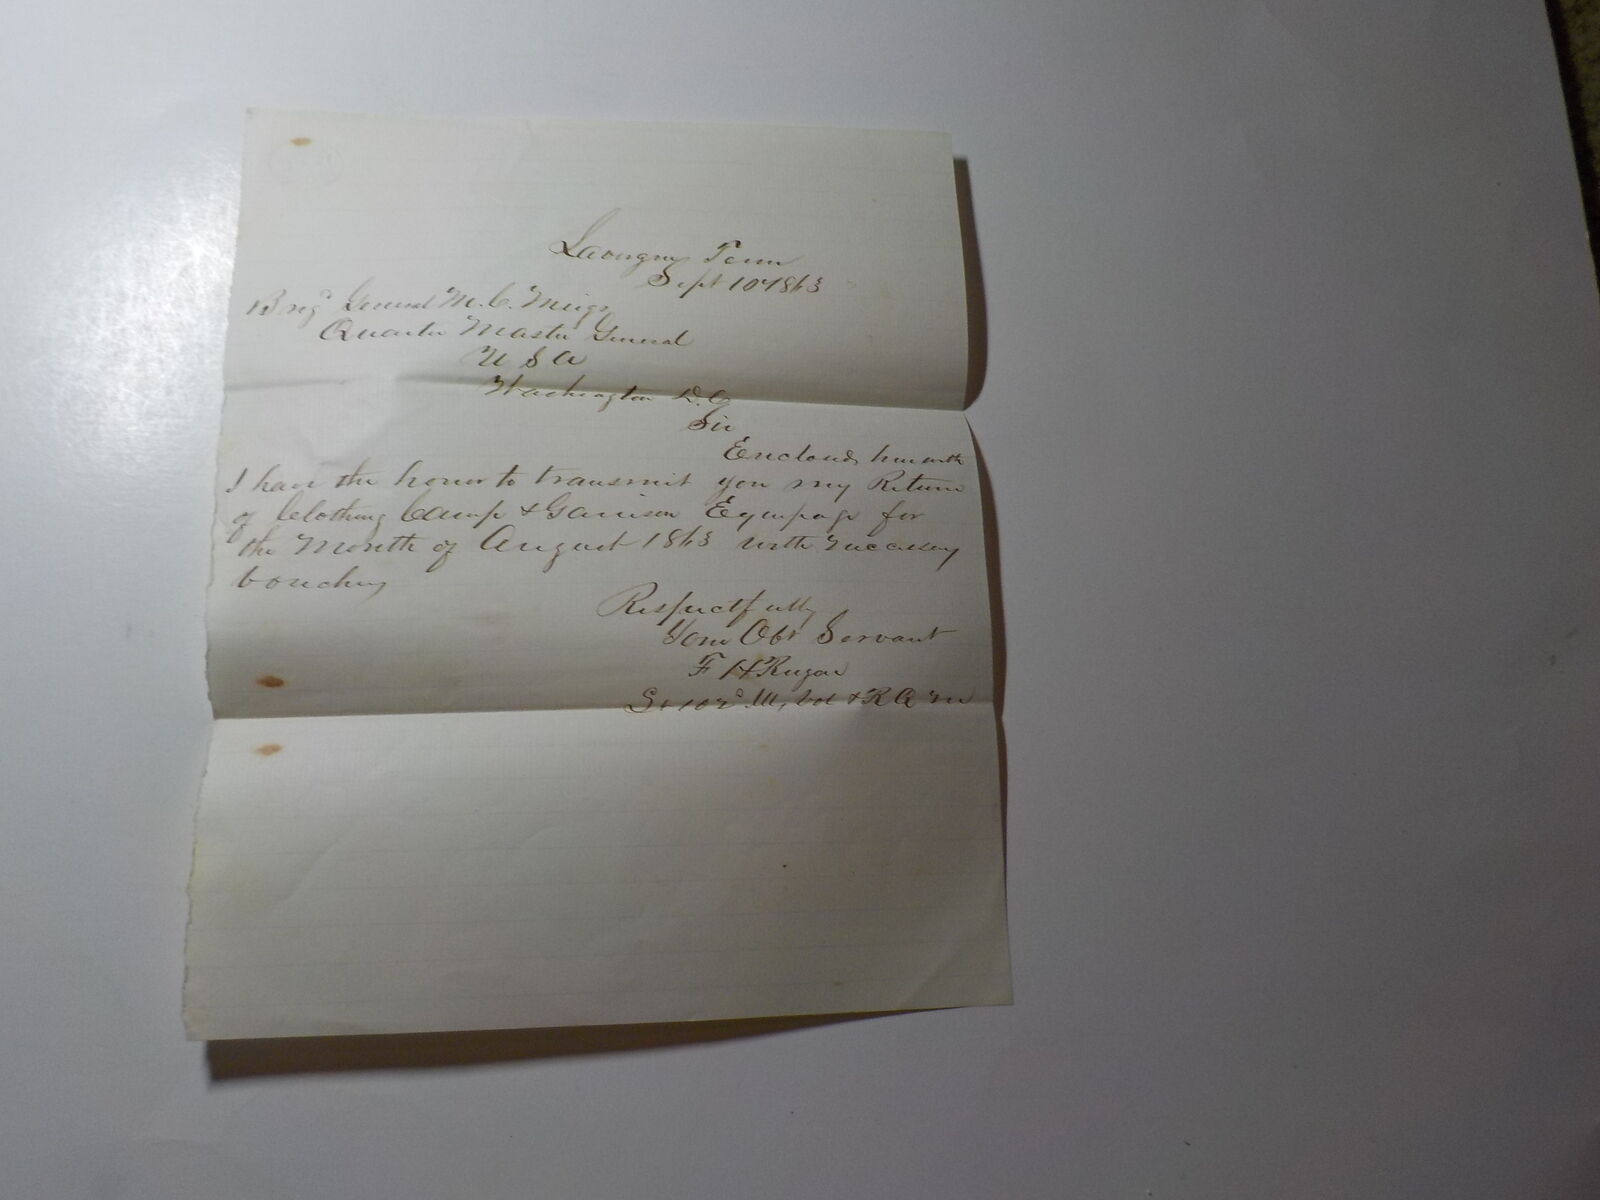 Lavergne Tenn
Sept 10 1863
Brigd General M. C. Meigs
Quarter Master General
U S A
Washington D.C.
Sir
Enclosed herewith
I have the honor to transmit you my Return
of Clothing Camp & Garrison Equipage for
the Month of August 1863 with necessary
vouchers
Respectfully
Your Obt Servant
F H Rugar
Lt 102d Ill, Vol & R Q M